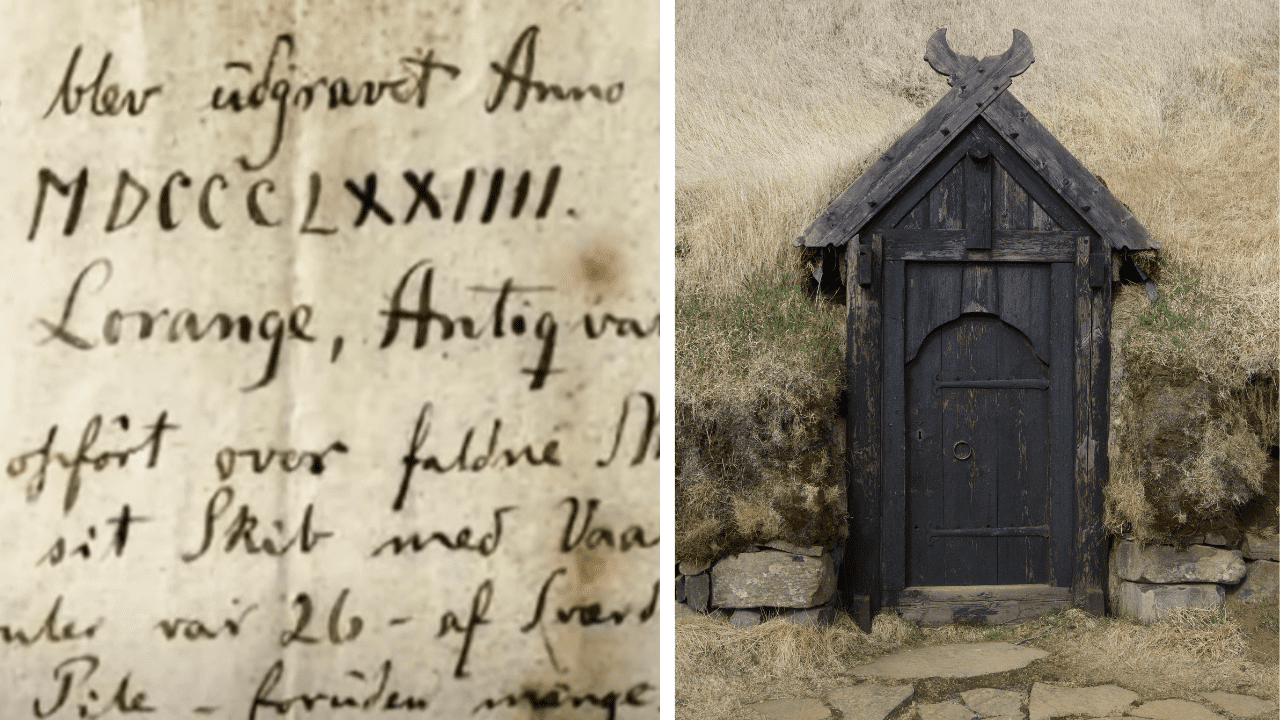 blev udgravet Anno
MDCCCLXXIIII.
Lorange, Antiqva
opført over faldne M
sit Skib med Vaa
var 26 - af Sværd
Pile - foruden mænge